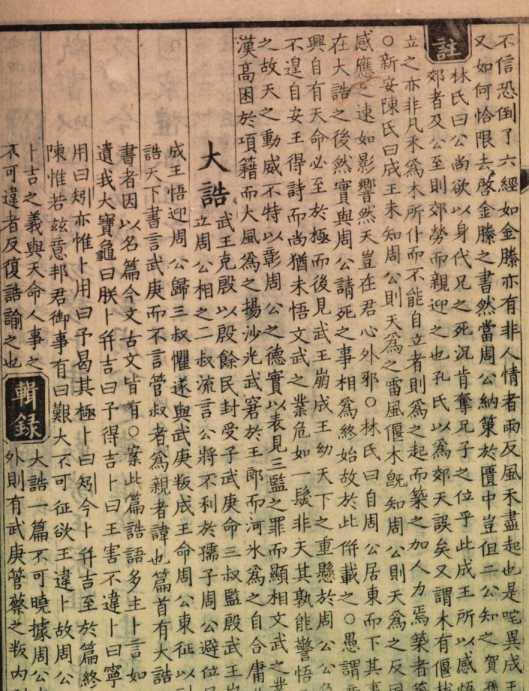 不信恐倒了六經如金縢亦有非人情者雨反風禾盡起也是咤異成王
又如何恰限去啓金縢之書然當周公納策於匱中豈但二公知之賀
林氏曰公尚欲以身代兄之死況肯奪兄子之位乎此成王所以感悟
註
郊者及公至則郊勞而親迎之也孔氏以爲郊天誤矣又謂木有偃
立之亦非凡禾爲木所仆而不能自立者則爲之起而築之加人力焉築者
○新安陳氏曰成王未知周公則天爲之雷風偃木旣知周公則天爲之反
感應之速如影響然天豈在君心外邪○林氏曰自周公居東而下其
在大誥之後然實與周公請死之事相爲終始故於此併載之○愚謂
興自有天命必至於極而後見武王崩成王幼天下之重懸於周公
不遑自安王得詩而尚猶未悟文武之業危如一髮非天其孰能警悟
之故天之動威不特以彰周公之德實以表見三監之罪而顯相文武之
漢高困於項籍而大風爲之揚沙光武窘於王郎而河氷爲之自合庸
大誥
武王克殷以殷餘民封受子武庚命三叔監殷武王崩
立周公相之二叔流言公將不利於孺子周公避位
成王悟迎周公歸三叔懼遂與武庚叛成王命周公東征以
誥天下書言武庚而不言管叔者爲親者諱也篇首有大誥
書者因以名篇今文古文皆有○案此篇誥語多主卜言如
遺我大寶龜曰朕卜幷吉曰予得吉卜曰王害不違卜曰寧
用曰矧亦惟卜用曰予曷其極卜曰矧今卜幷吉至於篇終
陳惟若兹意邦君御事有曰艱大不可征欲王違卜故周公
卜吉之義與天命人事之
不可違者反復誥諭之也
輯録
大誥一篇不可曉據周公
外則有武庚管蔡之叛內